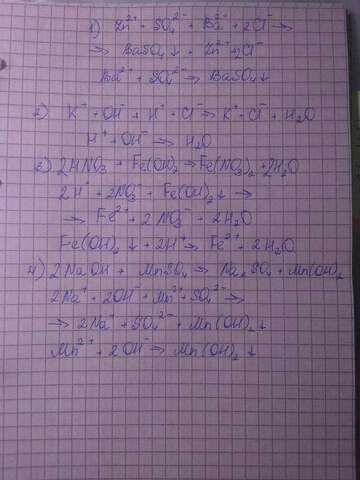 1) Zn²⁺ + SO₄²⁻ + Ba²⁺ + 2Cl⁻ →
→ BaSO₄↓ + Zn²⁺ + 2Cl⁻
Ba²⁺ + SO₄²⁻ → BaSO₄↓
2) K⁺ + OH⁻ + H⁺ + Cl⁻ → K⁺ + Cl⁻ + H₂O
H⁺ + OH⁻ → H₂O
3) 2HNO₃ + Fe(OH)₂ → Fe(NO₃)₂ + 2H₂O
2H⁺ + 2NO₃⁻ + Fe(OH)₂↓ →
→ Fe²⁺ + 2NO₃⁻ + 2H₂O
Fe(OH)₂↓ + 2H⁺ → Fe²⁺ + 2H₂O
4) 2NaOH + MnSO₄ → Na₂SO₄ + Mn(OH)₂
2Na⁺ + 2OH⁻ + Mn²⁺ + SO₄²⁻ →
→ 2Na⁺ + SO₄²⁻ + Mn(OH)₂↓
Mn²⁺ + 2OH⁻ → Mn(OH)₂↓